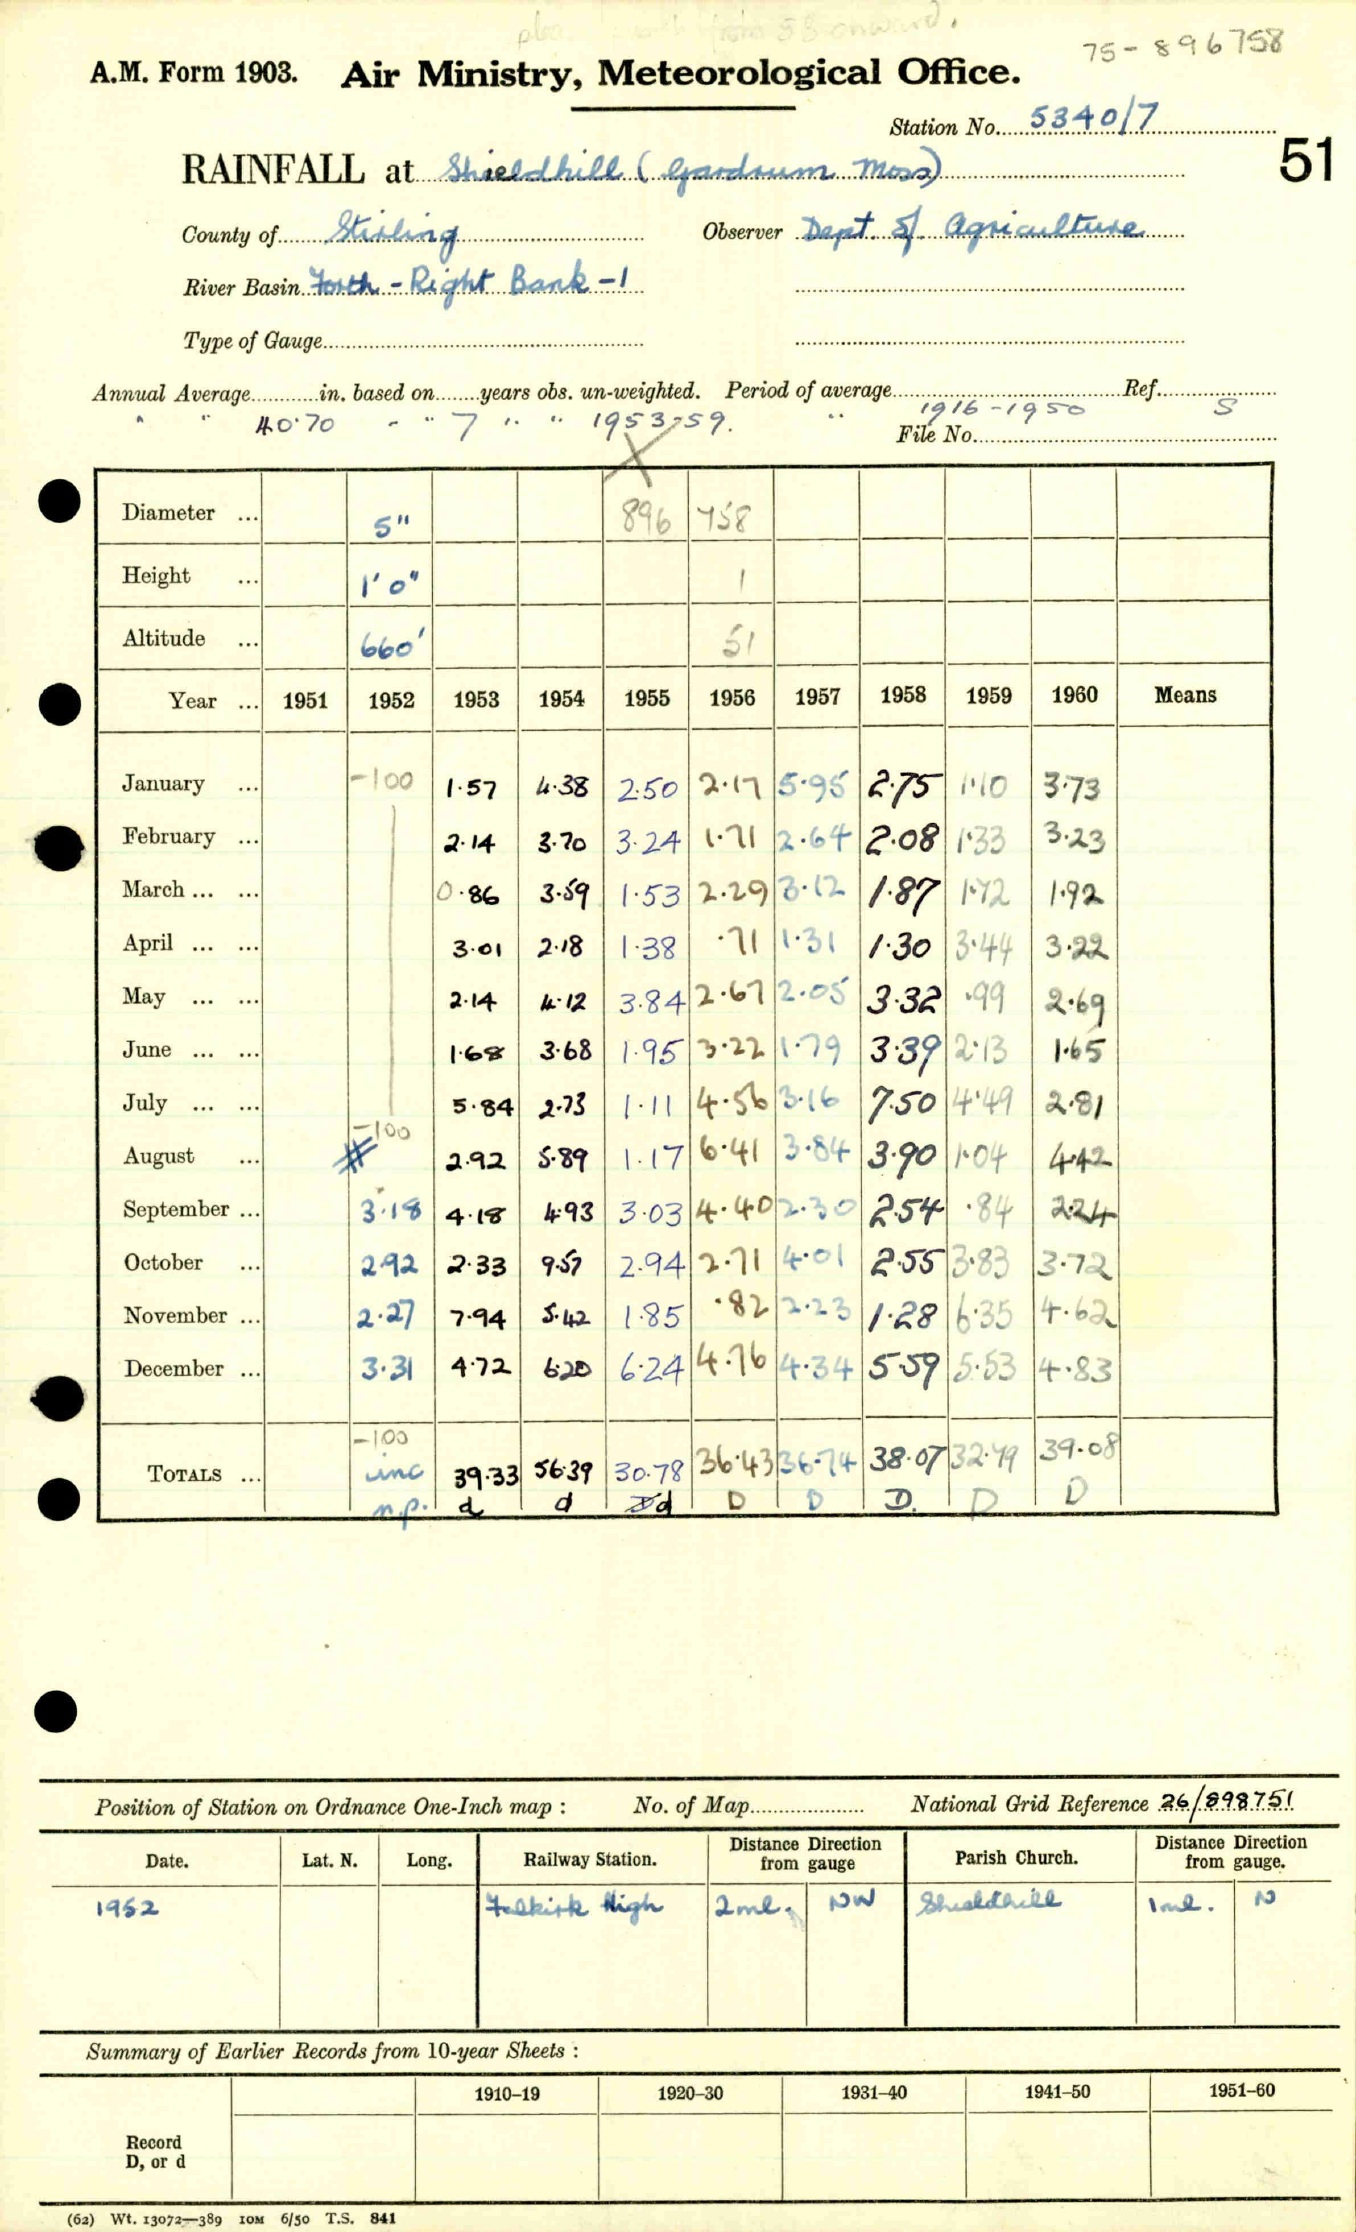 from 53 onward.
75-896758
A.M. Form 1903. Air Ministry, Meteorological Office.
Station No. 5340/7
51
RAINFALL at Shieldhill (Gardrum Moss)
County of Stirling Observer Dept. of Agriculture
River Basin Forth - Right Bank - 1
Type of Gauge
Annual Average in. based on years obs. un-weighted. Period of average Ref.
" " 40.70 - " 7 " " 1953-59. " 1916-1950 S
File No.
Diameter ... 5" 896 758
Height ... 1' 0" 1
Altitude ... 660' 51
Year ... 1951 1952 1953 1954 1955 1956 1957 1958 1959 1960 Means
January ... -100 1.57 4.38 2.50 2.17 5.95 2.75 1.10 3.73
February ... 2.14 3.70 3.24 1.71 2.64 2.08 1.33 3.23
March ... ... 0.86 3.59 1.53 2.29 3.12 1.87 1.72 1.92
April ... ... 3.01 2.18 1.38 .71 1.31 1.30 3.44 3.22
May ... ... 2.14 4.12 3.84 2.67 2.05 3.32 .99 2.69
June ... ... 1.68 3.68 1.95 3.22 1.79 3.39 2.13 1.65
July ... ... 5.84 2.73 1.11 4.56 3.16 7.50 4.49 2.81
-100
August ... # 2.92 5.89 1.17 6.41 3.84 3.90 1.04 4.42
September ... 3.18 4.18 4.93 3.03 4.40 2.30 2.54 .84 2.24
October ... 2.92 2.33 9.57 2.94 2.71 4.01 2.55 3.83 3.72
November ... 2.27 7.94 5.42 1.85 .82 2.23 1.28 6.35 4.62
December ... 3.31 4.72 6.20 6.24 4.76 4.34 5.59 5.53 4.83
-100
TOTALS ... inc 39.33 56.39 30.78 36.43 36.74 38.07 32.79 39.08
n.p. d d d D D D. D D
Position of Station on Ordnance One-Inch map : No. of Map National Grid Reference 26/898751
Date. Lat. N. Long. Railway Station. Distance Direction from gauge Parish Church. Distance Direction from gauge.
1952 Falkirk High 2ml. NW Shieldhill 1ml. N
Summary of Earlier Records from 10-year Sheets :
1910–19 1920–30 1931–40 1941–50 1951–60
Record
D, or d
(62) Wt. 13072—389 10M 6/50 T.S. 841